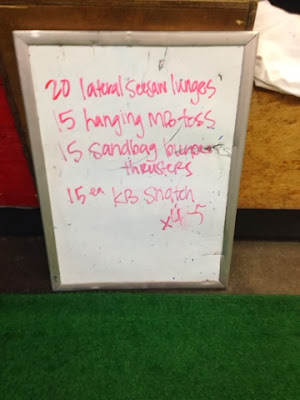 20 lateral seesaw lunges
15 hanging MB toss
15 Sandbag burpee
thrusters
15 ea KB Snatch
x4-5